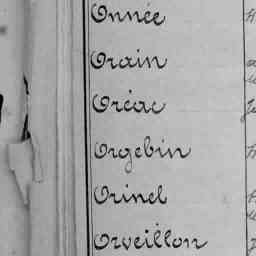 Onnée
Orain
Oréac
Orgebin
Orinel
Orveillon